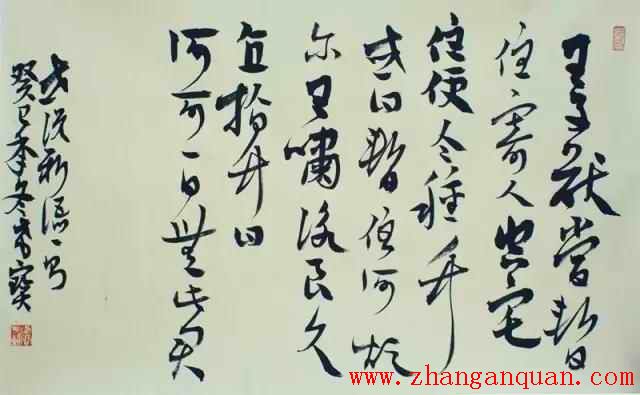 王子猷嘗暫
住寄人空宅
住便令種竹
或问暫住何煩
尔王嘯詠良久
直指竹曰
何可一日無此君
世说新语一
癸巳季冬
www.zhanganquan.com